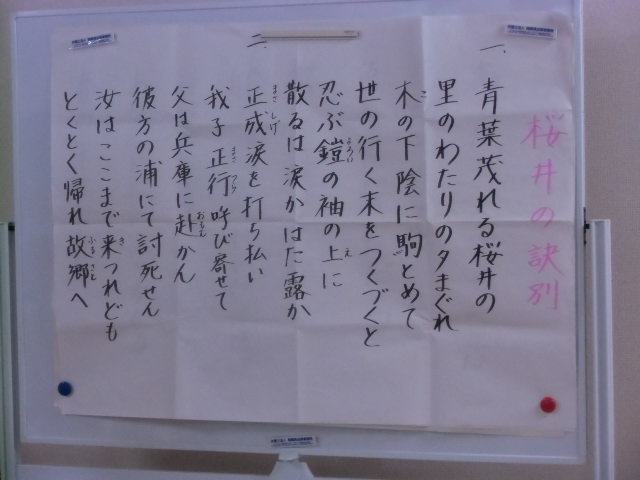 桜井の訣別
一、
青葉茂れる桜井の
里のわたりの夕まぐれ
木の下陰に駒とめて
世の行く末をつくづくと
忍ぶ鎧の袖の上に
散るは涙かはた露か
二、
正成涙を打ち払い
我子正行呼び寄せて
父は兵庫に赴かん
彼方の浦にて討死せん
汝はここまで来つれども
とくとく帰れ故郷へ